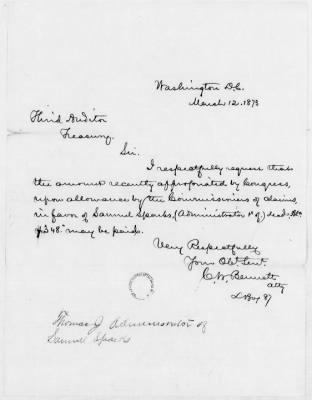 Washington D.C.
March 12. 1873
Third Auditor
Treasury.
Sir.
I respectfully request that
the amount recently appropriated by Congress,
upon allowance by the Commissioners of claims,
in favor of Samuel Sparks, (Administrator of) dead.
$348. may be paid.
Very Respectfully
Your Obt. Servt.
C. W. Bennett
atty
Thomas J Administrator of
Samuel Sparks